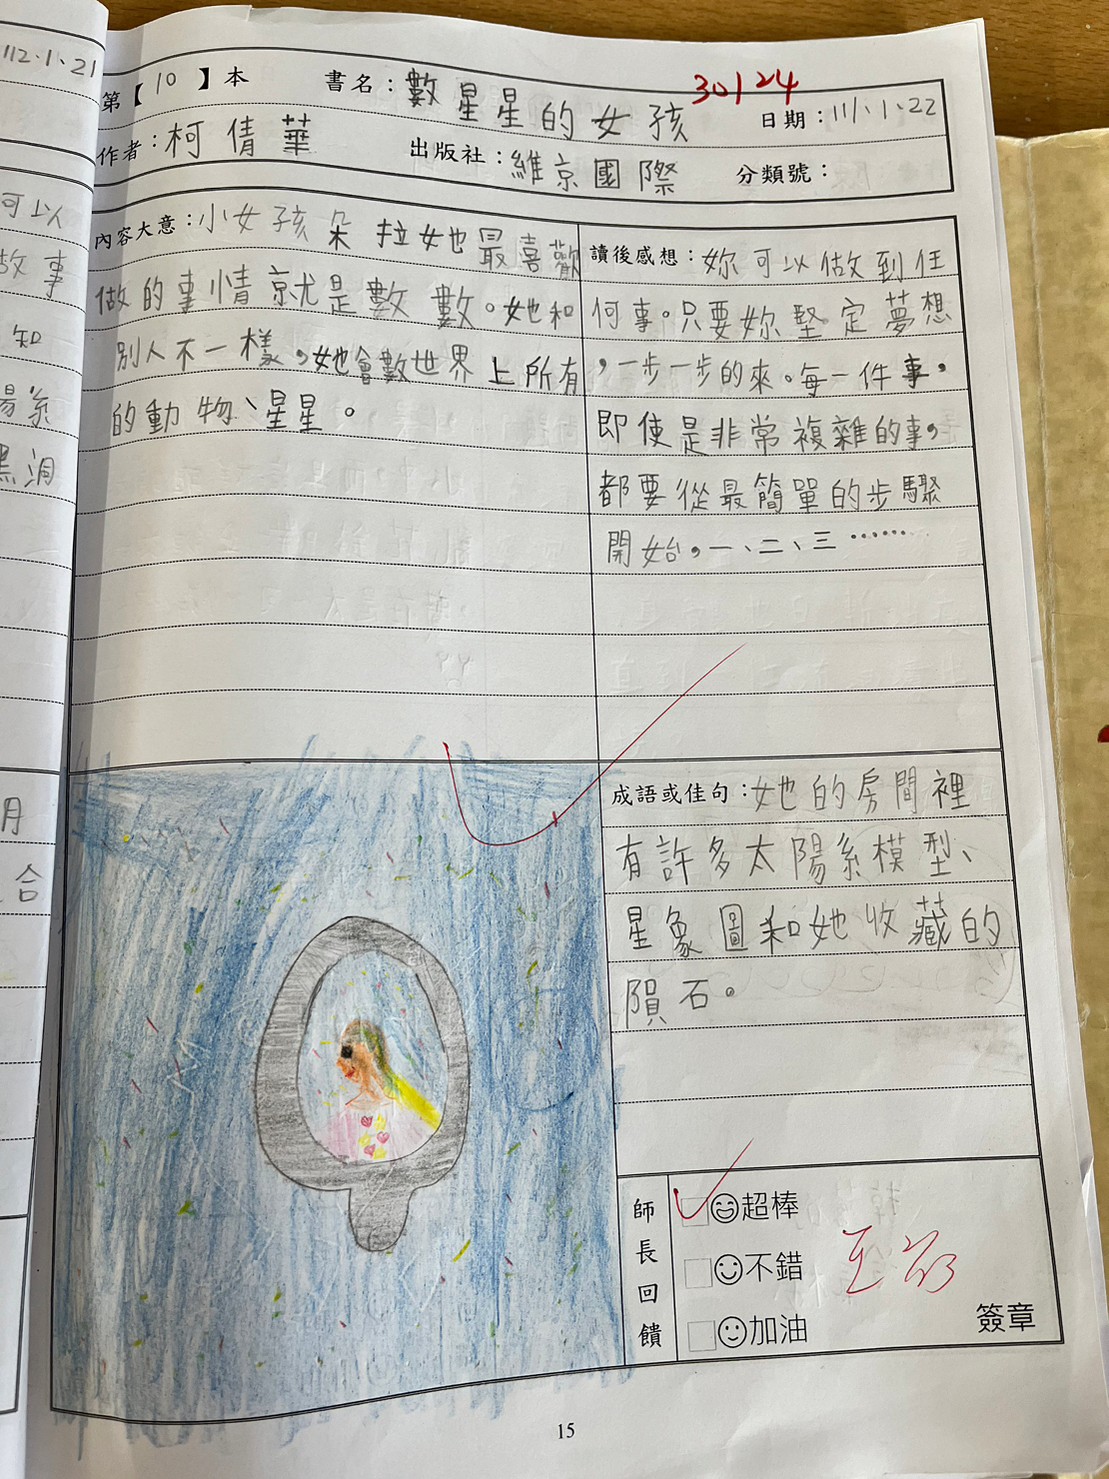 112、1、21
可以
故事
知
陽系
黑洞
月
合
30124
第【10】本 書名：數星星的女孩 日期：111、1、22
作者：柯倩華 出版社：維京國際 分類號：
內容大意：小女孩朵拉她最喜歡
做的事情就是數數。她和
別人不一樣，她會數世界上所有
的動物、星星。
讀後感想：妳可以做到任
何事。只要妳堅定夢想
，一步一步的來。每一件事，
即使是非常複雜的事，
都要從最簡單的步驟
開始，一、二、三……
成語或佳句：她的房間裡
有許多太陽系模型、
星象圖和她收藏的
隕石。
師長回饋
超棒
不錯
加油
簽章
15